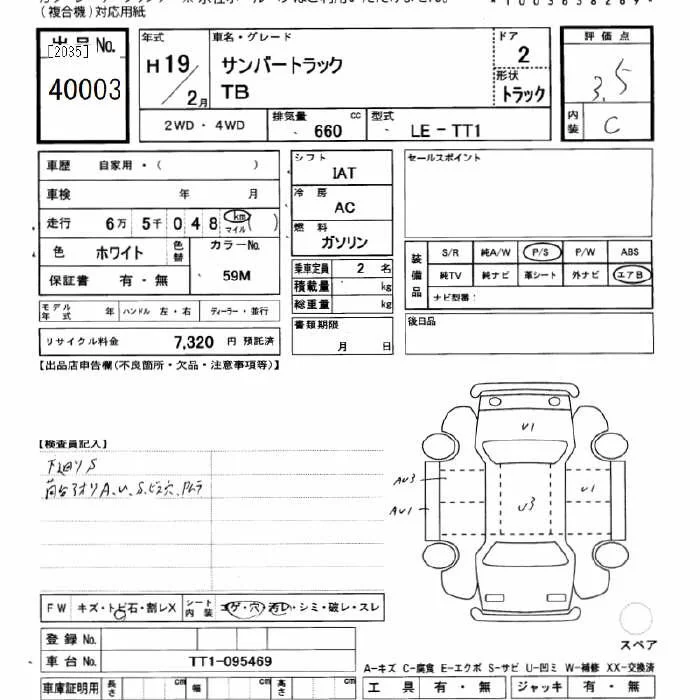 (複合機)対応用紙
*1003638289*
出品 No.
[2035]
40003
年式
H19/2月
車名・グレード
サンバートラック
TB
ドア
2
形状
トラック
評価点
3.5
内装
C
2WD・4WD
排気量 660 cc
型式 LE-TT1
車歴 自家用・( )
車検 年 月
走行 6万 5千 048 km マイル ( )
色 ホワイト 色替 カラーNo.
保証書 有・無 59M
モデル年式 年 ハンドル 左・右 ディーラー・並行
リサイクル料金 7,320 円 預託済
シフト
IAT
冷房
AC
燃料
ガソリン
乗車定員 2 名
積載量 kg
総重量 kg
書類期限
月 日
セールスポイント
装備品
S/R 純A/W P/S P/W ABS
純TV 純ナビ 革シート 外ナビ エアB
ナビ型番:
後日品
【出品店申告欄(不良箇所・欠品・注意事項等)】
【検査員記入】
下廻りS
荷台アオリA、U、S、ビス穴、Pムラ
U1
AU3
AU1
U3
U1
FW キズ・トビ石・割レX シート内装 コゲ・穴・汚レ・シミ・破レ・スレ
登録 No.
車台 No. TT1-095469
スペア
A-キズ C-腐食 E-エクボ S-サビ U-凹ミ W-補修 XX-交換済
車庫証明用 長さ cm 幅 cm 高さ cm
工具 有・無 ジャッキ 有・無